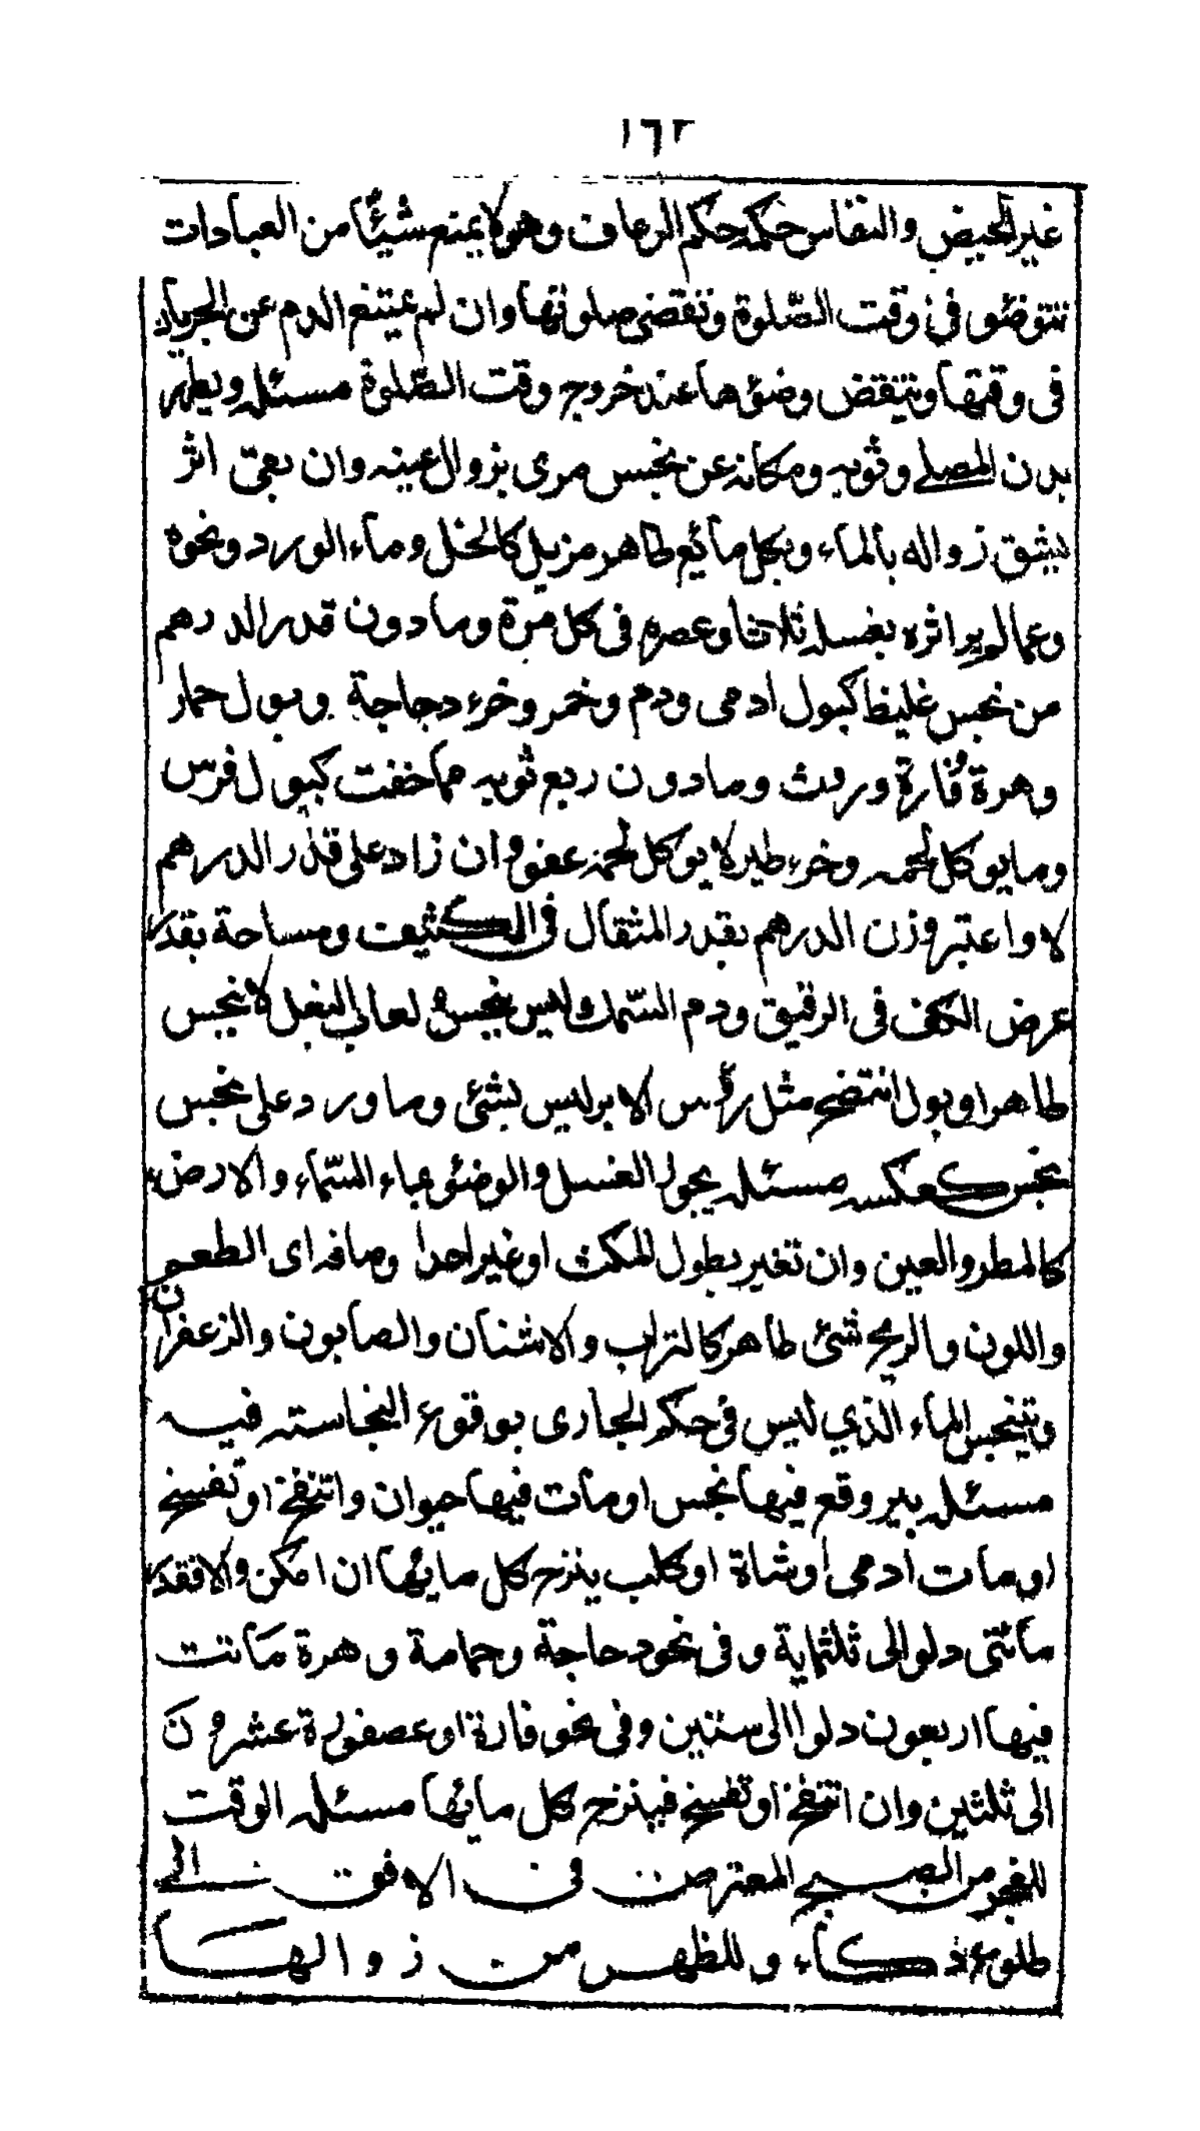 ١٦٢
غير الحيض والنفاس حكمه حكم الرعاف وهو لا يمنع شيئًا من العبادات
تتوضؤ في وقت الصّلوة وتقضى صلوتها وان لم يمتنع الدم عن الجريان
فى وقتها وتنتقض وضؤها عند خروج وقت الصّلوة مسئله ويطهر
بدن المصلے وثوبه ومكانه عن نجس مرى بزوال عينه وان بقى اثر
يشق زواله بالماء وبكل مائع طاهر مزيل كالخل وماء الورد ونحوه
وعما لم ير اثره بغسله ثلاثا وعصره فى كل مرة وما دون قدر الدرهم
من نجس غليظ كبول ادمى ودم وخمر وخرء دجاجة وبول حمار
وهرة وفارة وروث وما دون ربع ثوبه مما خفت كبول فرس
وما يوكل لحمه وخرء طير لا يوكل لحمه عفو وان زاد على قدر الدرهم
لا واعتبر وزن الدرهم بقدر المثقال فى الكثيف ومساحة بقدر
عرض الكف فى الرقيق ودم السّمك وليس بنجس و لعاب البغل لا ينجس
طاهرا وبول انتضح مثل رؤس الابر ليس بشئ وما ورد على نجس
نجس كعكسه مسئله يجوز الغسل والوضؤ بماء السّماء والارض
كالمطر والعين وان تغير بطول المكث او غير احدا وصافه اى الطعم
واللون والريح شئ طاهر كالتراب والاشنان والصابون والزعفران
ويتنجس الماء الذي ليس فى حكم الجارى بوقوع النجاسته فيه
مسئله بير وقع فيها نجس او مات فيها حيوان وانتفخ او تفسخ
او مات ادمى او شاة او كلب ينزح كل مائها ان امكن والا فقدر
مائتى دلو الى ثلثماية وفى نحو دجاجة وحمامة وهرة ماتت
فيها اربعون دلوا الى ستين وفى نحو فارة او عصفورة عشرون
الى ثلثين وان انتفخ او تفسخ فينزح كل مائها مسئله الوقت
للفجر من الصبح المعترض فى الافق الى
طلوع ذكاء وللظهر من زوالها